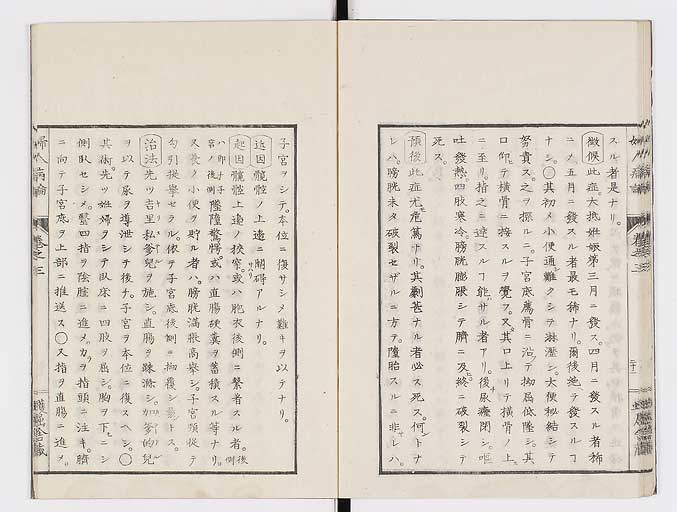 スル者是ナリ。
徴候此症。大抵妊娠第三月ニ發ス。四月ニ發スル者稀
ニメ五月ニ發スル者最モ稀ナリ。爾後絶テ發スルフ
ナシ。〇其初メ小便通難クシテ淋瀝シ。大便秘結シテ
努責ス。之ヲ探ルニ。子宮底薦骨ニ沿テ拗屈低降シ。其
口却テ横骨ニ接スルヲ覺フ。又其口上リテ横骨ノ上
ニ至リ。指之ニ達スルフ能ハサル者アリ。後尿癃閉シ。嘔
吐發熱四肢寒冷。膀胱膨脹シテ臍ニ及ヒ終ニ破裂シテ
死ス。
預後此症尤危篤ナリ。其劇甚ナル者必ス死ス。何トナ
レハ。膀胱未タ破裂セザルニ方テ。墮胎スルニ非レハ。
子宮ヲシテ。本位ニ復サシメ難キヲ以テナリ。
遠因髖骻ノ上邊ニ闊碍アルナリ。
起因髖骻上邊ノ狹窄。或ハ胞衣後側ニ繫着スル者。後側
ハ即チ子宮ノ後側墜墮驚愕。或ハ直腸硬糞ヲ蓄積スル等ナリ。
又最小便ヲ貯ル者ハ。膀胱滿脹高擧シ。子宮頸從テ
勾引提擧セラル。依テ子宮底後側ニ
治法先ツ吉里私爹兒ヲ施シ。直腸ヲ疎滌シ。加爹的兒
ヲ以テ尿ヲ導泄シテ後ナ。子宮ヲ本位ニ復スヘシ。〇
其術。先ツ妊婦ヲシテ臥床ニ四肢ヲ屈シ。胸ヲ下ニシ
側臥セシメ。醫四指ヲ陰腟ニ進メ。力ヲ指頭ニ注キ。臍
ニ向テ子宮底ヲ上部ニ推送ス〇又指ヲ直腸ニ進メ。
婦人病論
卷之三